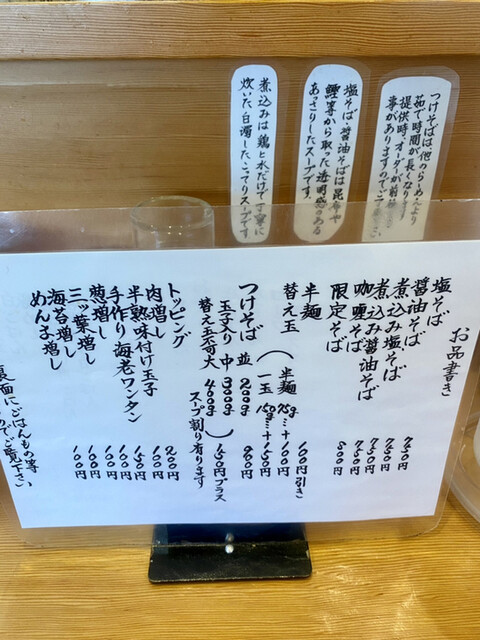 つけそばは、他のらぁめんより
茹で時間が長くなり
提供時、オーダーが前後
事がありますのでご了承
塩そば・醤油そばは昆布や
鰹等から取った透明感のある
あっさりしたスープです。
煮込みは鶏と水だけで丁寧に
炊いた白濁したこってりスープです。
お品書き
塩そば 750円
醤油そば 750円
煮込み塩そば 750円
煮込み醤油そば 750円
咖喱そば 750円
限定そば 800円
半麺 100円引き
替え玉 (半麺 75g…+100円
一玉 150g…+150円)
つけそば 並 200g 900円
玉子入り 中 300g
替え玉不可 大 400g 150円プラス
スープ割り有ります
トッピング
肉増し 200円
半熟味付け玉子 100円
手作り海老ワンタン 150円
葱増し 100円
三ッ葉増し 100円
海苔増し 100円
めんま増し 100円
裏面にごはんもの等、
のでご覧下さい